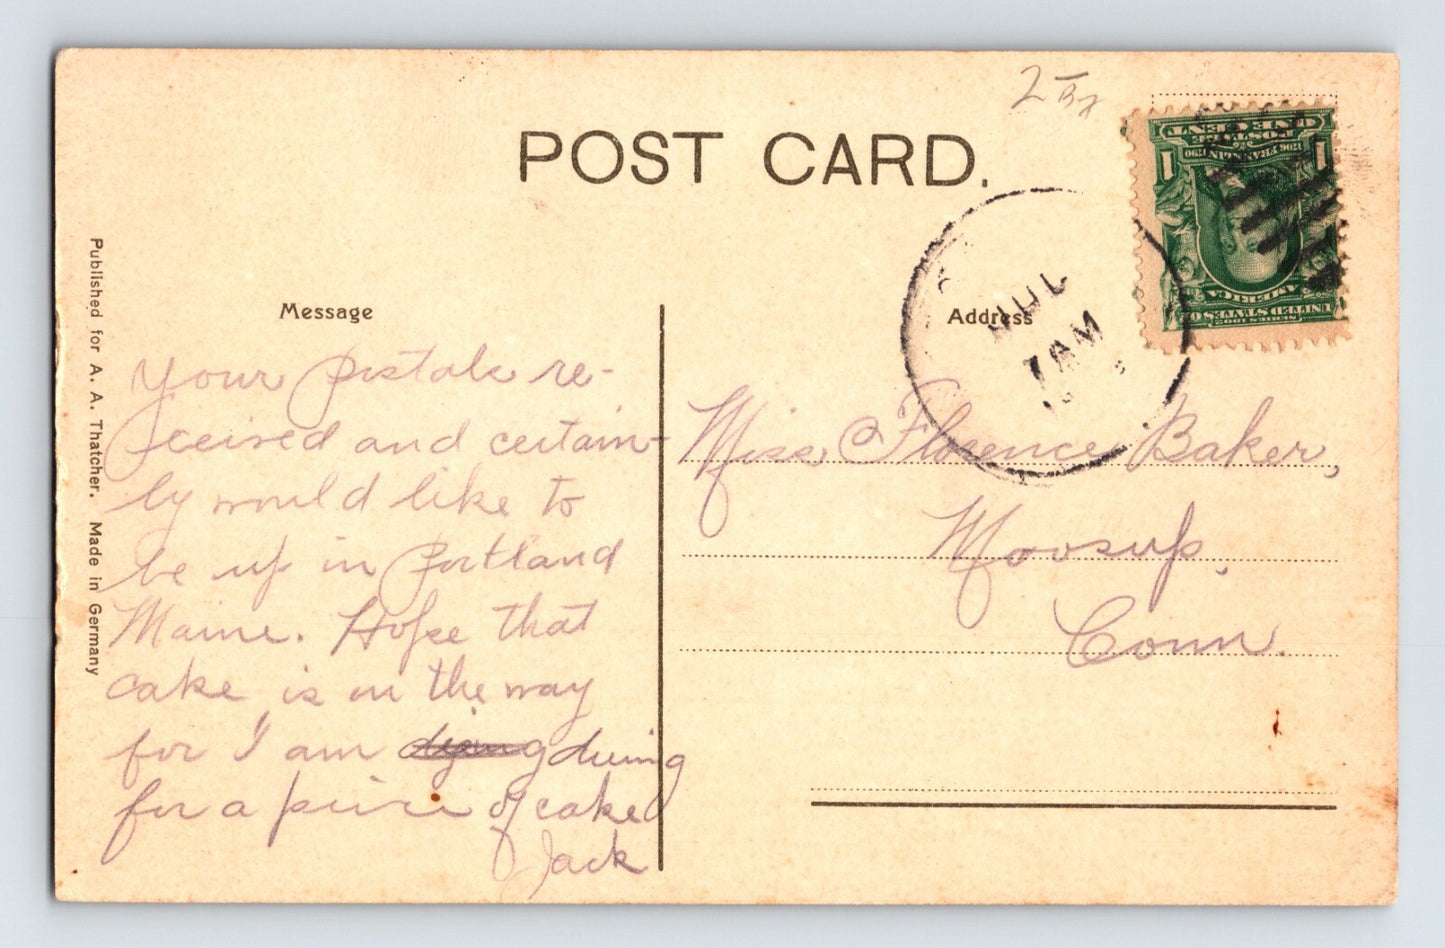 2
POST CARD.
ONE CENT
POSTAGE
1706 FRANKLIN 1790
1 1
AMERICA
SERIES 1902
UNITED STATES OF
JUL
7 AM
Message
Address
Your postals re-
ceived and certain-
ly would like to
be up in Portland
Maine. Hope that
cake is on the way
for I am dieing
for a piece of cake
Jack
Miss Florence Baker,
Moosup,
Conn.
Published for A. A. Thatcher. Made in Germany